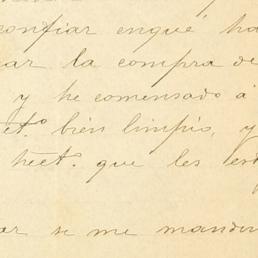 confiar enqué ha
ar la compra de
y he comensado á
ect.º bien limpio, y
hect. que les
ar se me mande